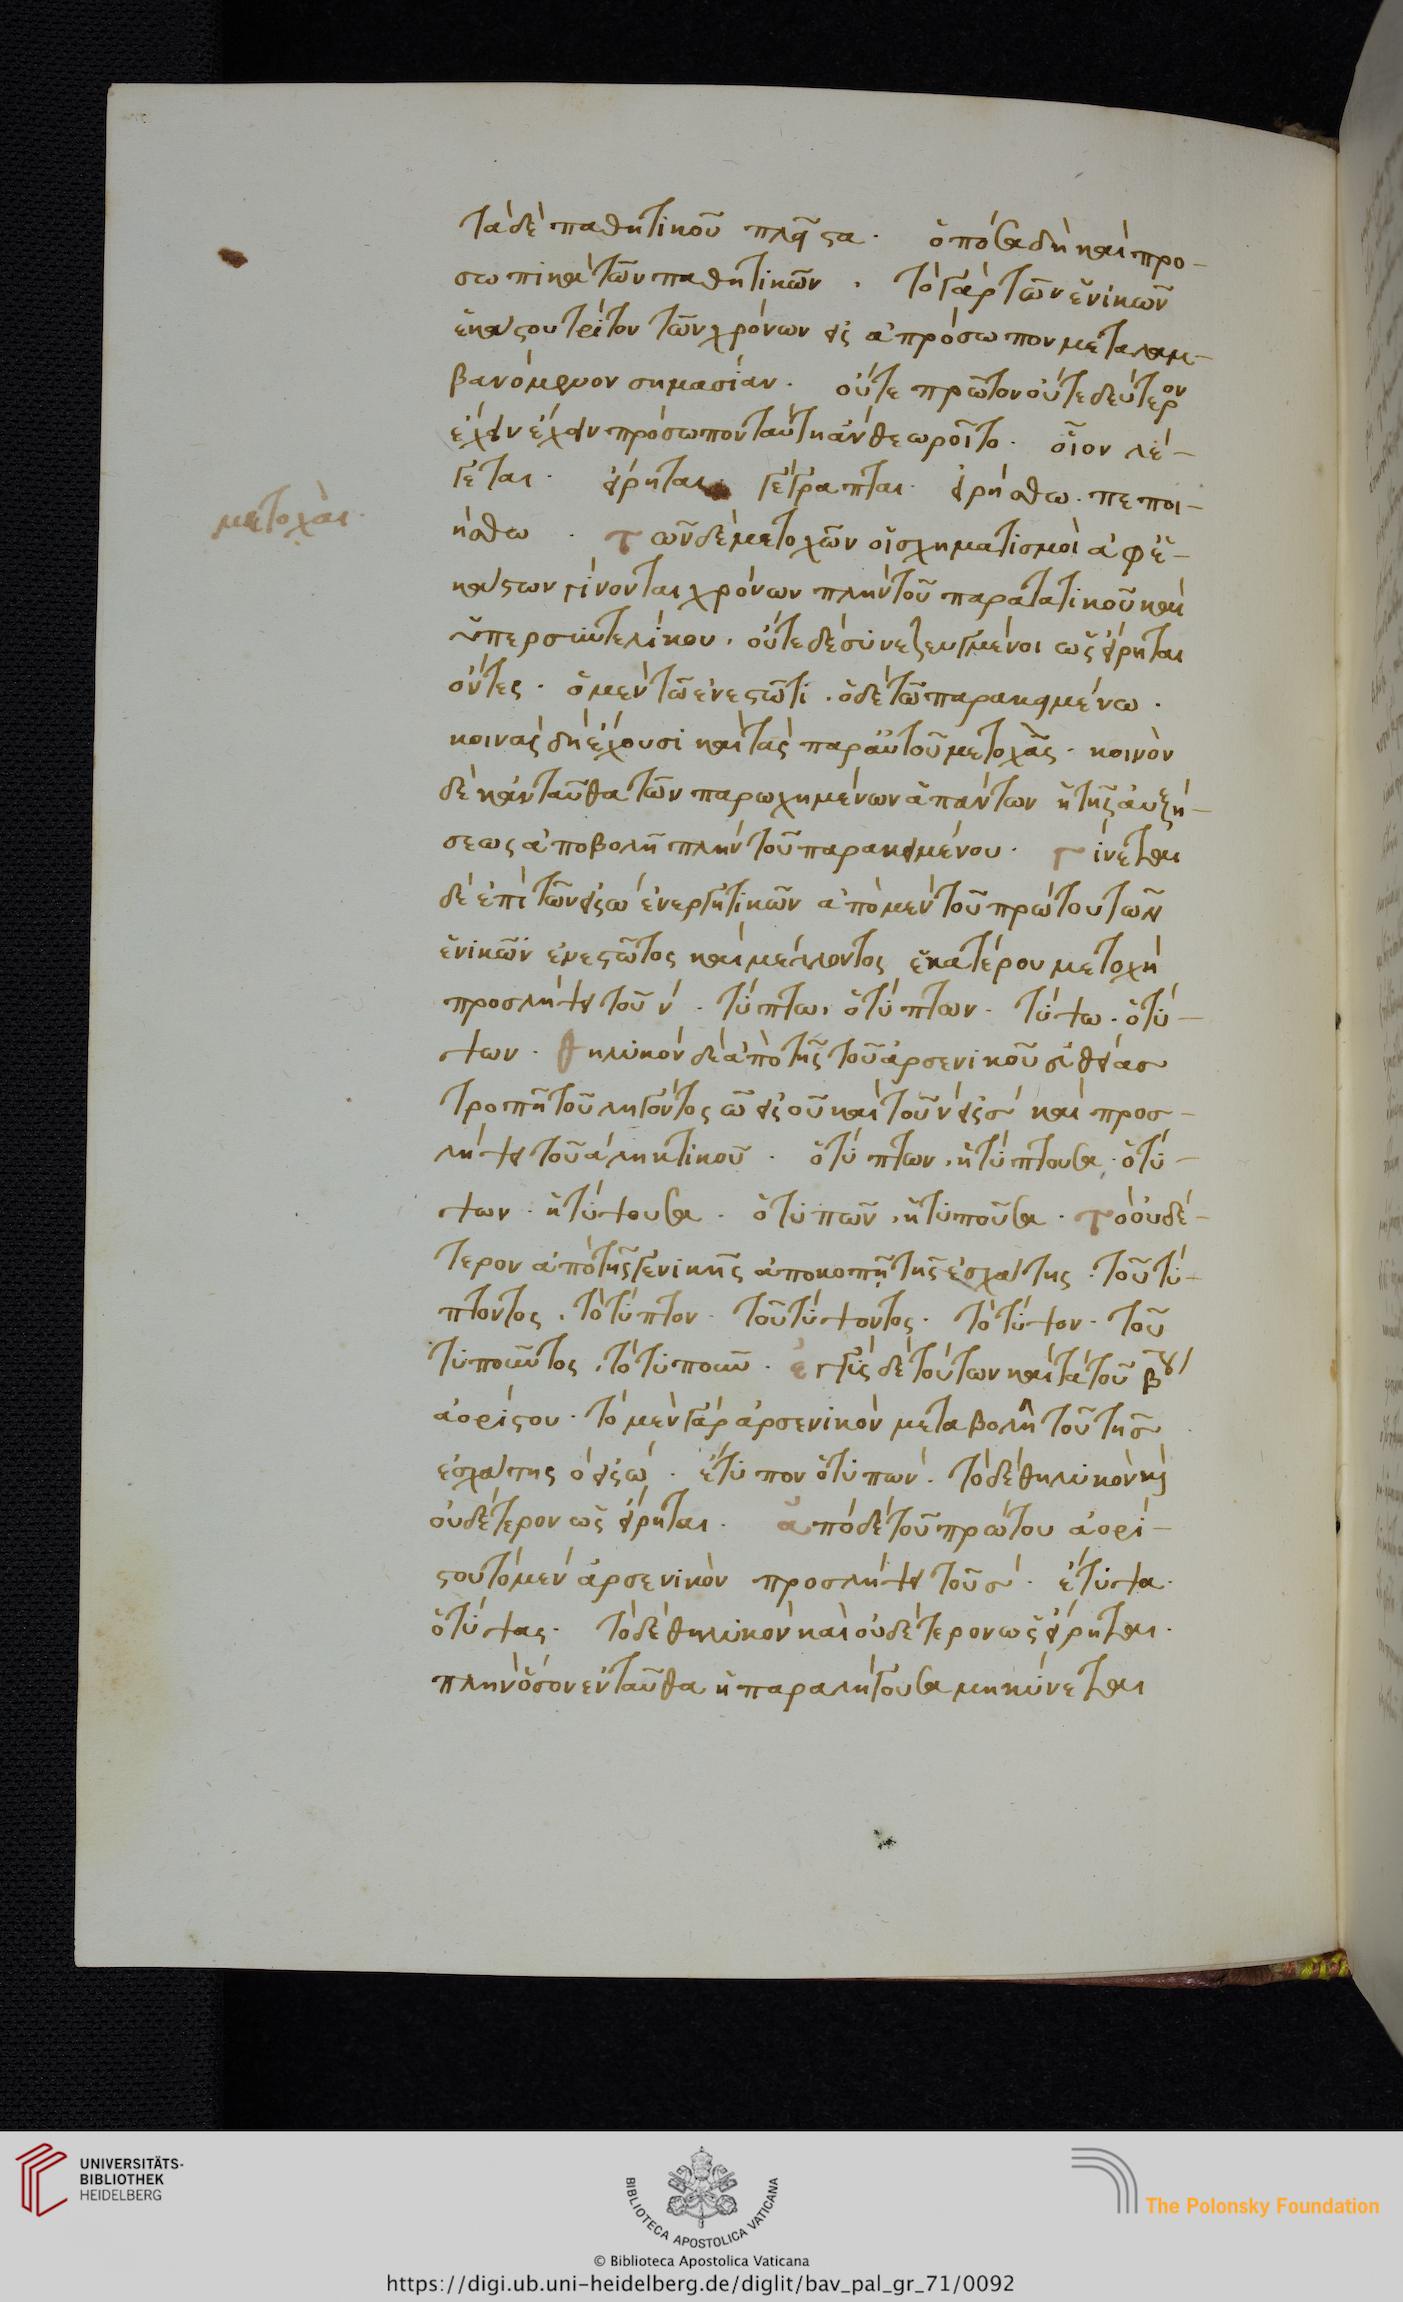 τὰ δὲ παθητικοῦ πλεῖστα. ὁπόσα δὴ καὶ προ-
σωπικὰ τῶν παθητικῶν. τὸ γὰρ τῶν ἑνικῶν
ἑκάστου τρίτον τῶν χρόνων εἰς ἀπρόσωπον μεταλαμ-
βανόμενον σημασίαν. οὔτε πρῶτον οὔτε δεύτερον
ἔχειν ἔχειν πρόσωπον ταύτη ἂν θεωροῖτο. οἷον λέ-
γεται. εἴρηται γέγραπται. εἰρήσθω. πεποι-
μετοχαί.
ήσθω. τῶν δὲ μετοχῶν οἱ σχηματισμοὶ ἀφ' ἑ-
κάστων γίνονται χρόνων πλὴν τοῦ παρατατικοῦ καὶ
ὑπερσυντελίκου. οὔτε δὲ συνεζευγμένοι ὡς εἴρηται
ὄντες. ὁ μὲν τῶ ἐνεστῶτι. ὁ δὲ τῶ παρακειμένω.
κοινὰς δὴ ἔχουσι καὶ τὰς παρ' αὐτοῦ μετοχὰς. κοινὸν
δὲ κἀνταῦθα τῶν παρωχημένων ἁπάντων ἡ τῆς αὐξή-
σεως ἀποβολὴ πλὴν τοῦ παρακειμένου. γίνεται
δὲ ἐπὶ τῶν εἰς ω ἐνεργητικῶν ἀπὸ μὲν τοῦ πρώτου τῶν
ἑνικῶν ἐνεστῶτος καὶ μέλλοντος ἑκατέρου μετοχὴ
προσλήψει τοῦ ν. τύπτω, ὁ τύπτων. τύψω. ὁ τύ-
ψων. θηλυκὸν δὲ ἀπὸ τῆς τοῦ ἀρσενικοῦ εὐθείας
τροπῆ τοῦ λήγοντος ω εἰς ου καὶ τοῦ ν εἰς σ καὶ προσ-
λήψει τοῦ α ληκτικοῦ. ὁ τύπτων, ἡ τύπτουσα. ὁ τύ-
ψων. ἡ τύψουσα. ὁ τυπῶν, ἡ τυποῦσα. τὸ οὐδέ-
τερον ἀπὸ τῆς γενικῆς ἀποκοπῇ τῆς ἐσχάτης. τοῦ τύ-
πτοντος. τὸ τύπτον. τοῦ τύψοντος. τὸ τύψον. τοῦ
τυποῦντος, τὸ τυποῦν. ἐγγὺς δὲ τούτων καὶ τὰ τοῦ β ου
ἀορίστου. τὸ μὲν γὰρ ἀρσενικὸν μεταβολῆ τοῦ τῆς
ἐσχάτης ο εἰς ω. ἔτυπον ὁ τυπών. τὸ δὲ θηλυκὸν καὶ
οὐδέτερον ὡς εἴρηται. ἀπὸ δὲ τοῦ πρώτου ἀορί-
στου τὸ μὲν ἀρσενικὸν προσλήψει τοῦ σ. ἔτυψα.
ὁ τύψας. τὸ δὲ θηλυκὸν καὶ οὐδέτερον ὡς εἴρηται.
πλὴν ὅσον ἐνταῦθα ἡ παραλήγουσα μηκύνεται
UNIVERSITÄTS-
BIBLIOTHEK
HEIDELBERG
BIBLIOTECA APOSTOLICA VATICANA
The Polonsky Foundation
© Biblioteca Apostolica Vaticana
https://digi.ub.uni-heidelberg.de/diglit/bav_pal_gr_71/0092